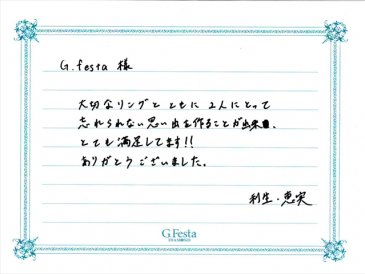 G.festa 様
大切なリングとともに2人にとって
忘れられない思い出を作ることが出来、
とても満足してます!!
ありがとうございました。
利生・恵実
G.Festa
DIAMOND